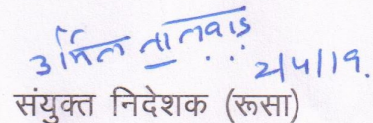 उर्मिल तालवाड
2/4/19.
संयुक्त निदेशक (रूसा)